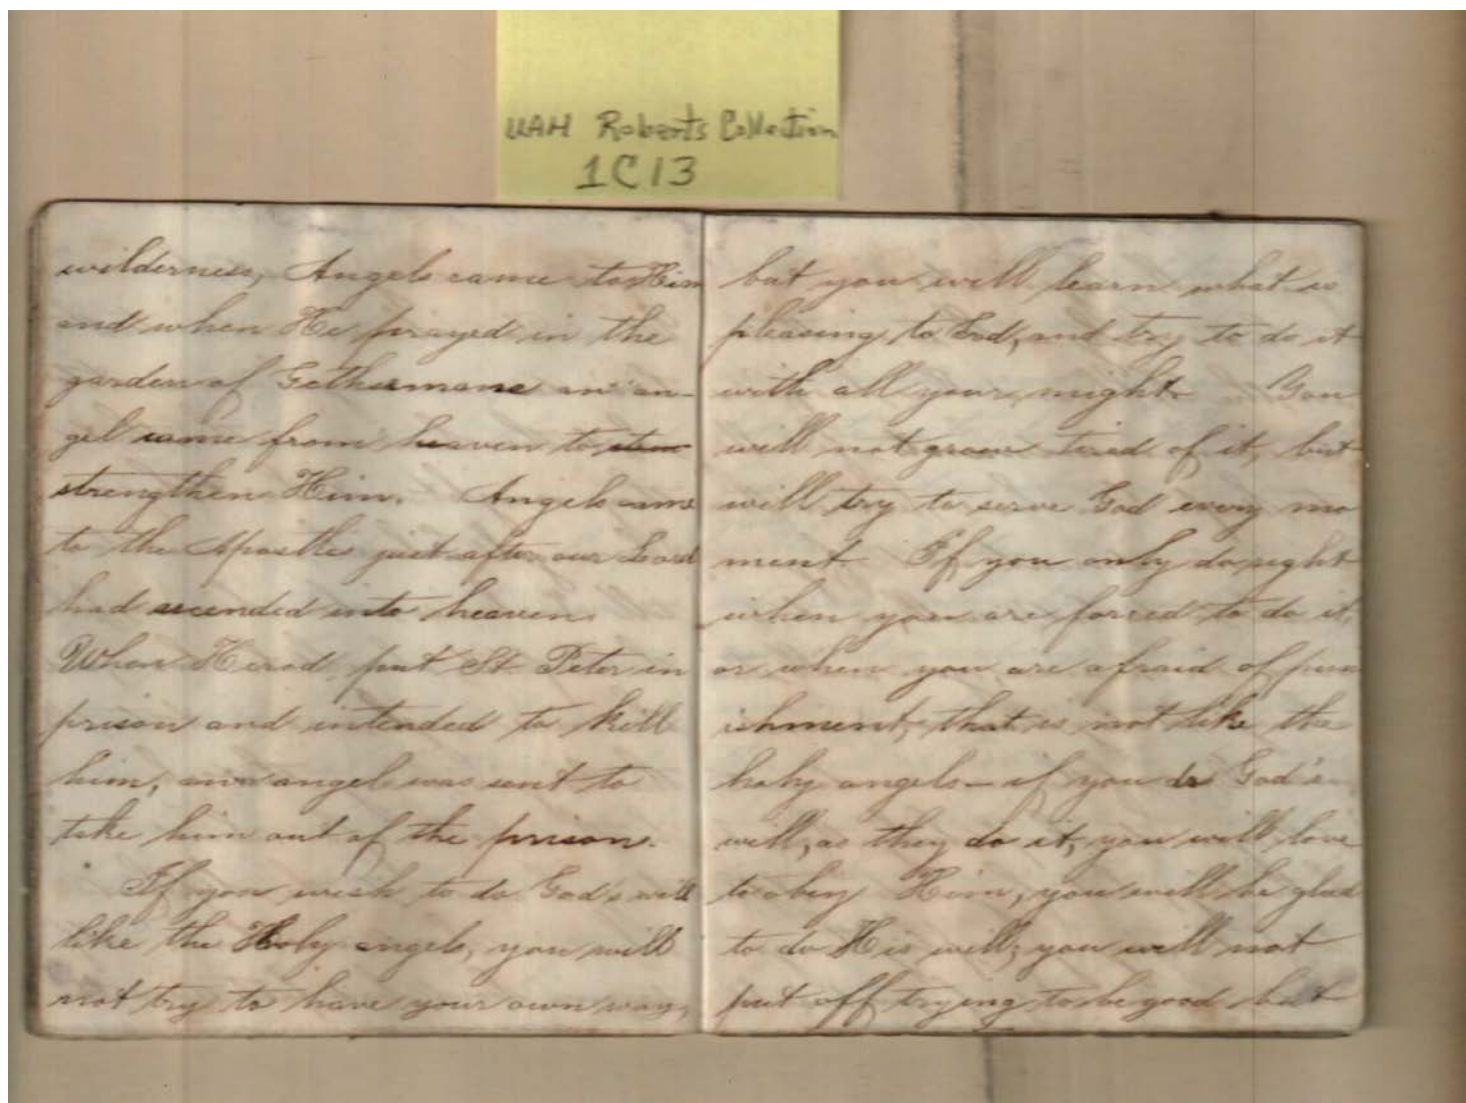 UAH Roberts Collection
1C13
wilderness, Angels came to Him
and when He prayed in the
garden of Gethsemane an an-
gel came from heaven to
strengthen Him. Angels came
to the Apostles just after our Lord
had ascended into heaven.
When Herod put St. Peter in
prison and intended to kill
him, an angel was sent to
take him out of the prison.
If you wish to do God's will
like the Holy angels, you will
not try to have your own way,
but you will learn what is
pleasing to God, and try to do it
with all your might. You
will not grow tired of it, but
will try to serve God every mo
ment. If you only do right
when you are forced to do it,
or when you are afraid of pun
ishment, that is not like the
holy angels — if you do God's
will, as they do it, you will love
to obey Him, you will be glad
to do His will, you will not
put off trying to be good but